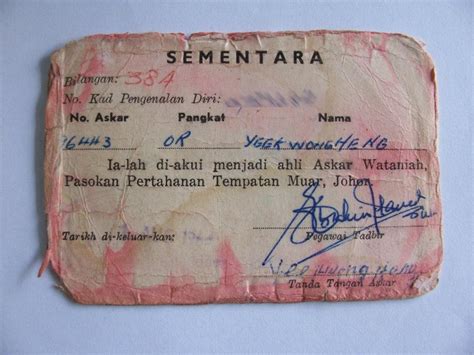 SEMENTARA
Bilangan: 384
No. Kad Pengenalan Diri:
No. Askar Pangkat Nama
96443 OR YEEK WONG HENG
Ia-lah di-akui menjadi ahli Askar Wataniah,
Pasokan Pertahanan Tempatan Muar, Johor.
Tarikh di-keluar-kan:
Pegawai Tadbir
Tanda Tangan Askar